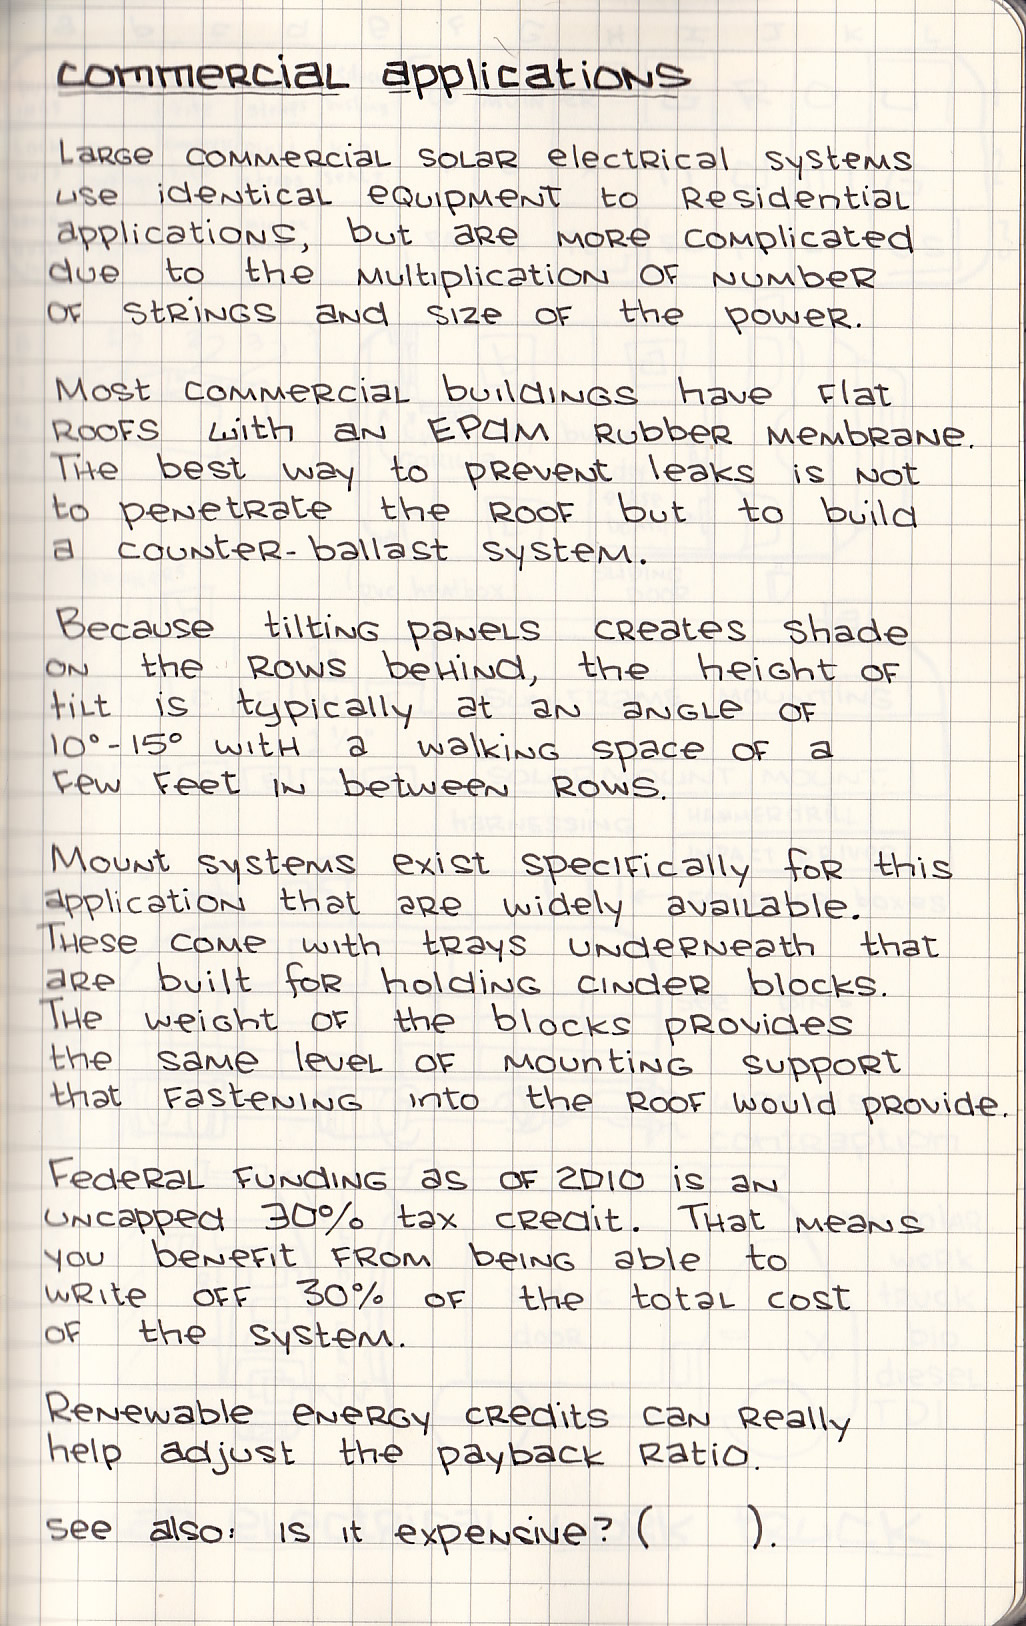 commercial applications
Large commercial solar electrical systems
use identical equipment to residential
applications, but are more complicated
due to the multiplication of number
of strings and size of the power.
Most commercial buildings have flat
roofs with an EPDM rubber membrane.
The best way to prevent leaks is not
to penetrate the roof but to build
a counter-ballast system.
Because tilting panels creates shade
on the rows behind, the height of
tilt is typically at an angle of
10°-15° with a walking space of a
few feet in between rows.
Mount systems exist specifically for this
application that are widely available.
These come with trays underneath that
are built for holding cinder blocks.
The weight of the blocks provides
the same level of mounting support
that fastening into the roof would provide.
Federal funding as of 2010 is an
uncapped 30% tax credit. That means
you benefit from being able to
write off 30% of the total cost
of the system.
Renewable energy credits can really
help adjust the payback ratio.
see also: is it expensive? (     ).